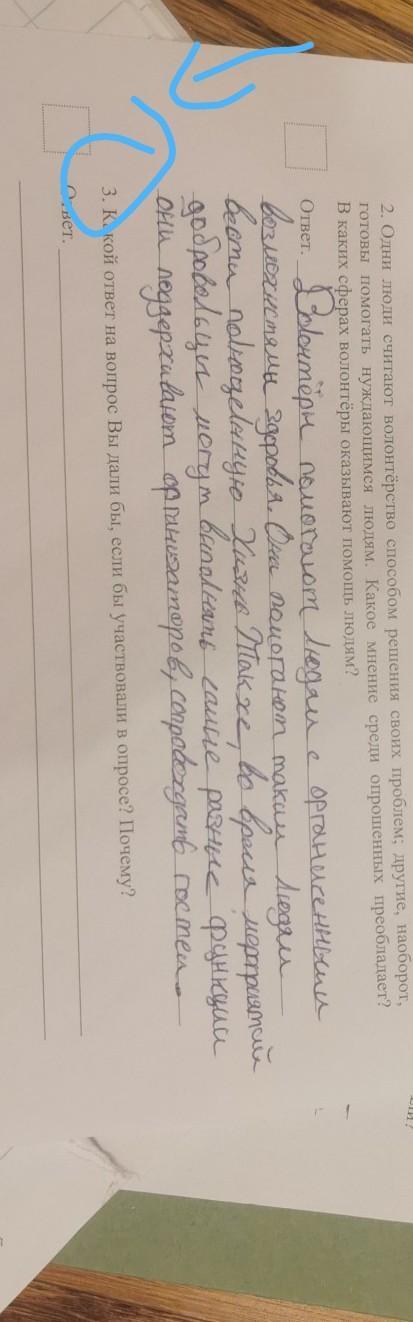 2. Одни люди считают волонтёрство способом решения своих проблем; другие, наоборот,
готовы помогать нуждающимся людям. Какое мнение среди опрошенных преобладает?
В каких сферах волонтёры оказывают помощь людям?
Ответ. Волонтёры помогают людям с органиженными
возможностями здоровья. Они помогают таким людям
вести полноценную жизнь. Также, во время мерприятий
добровольцы могут выполнять самые разные функции
они поддерживают организаторов, сопровождать гостей.
3. Какой ответ на вопрос Вы дали бы, если бы участвовали в опросе? Почему?
Ответ.